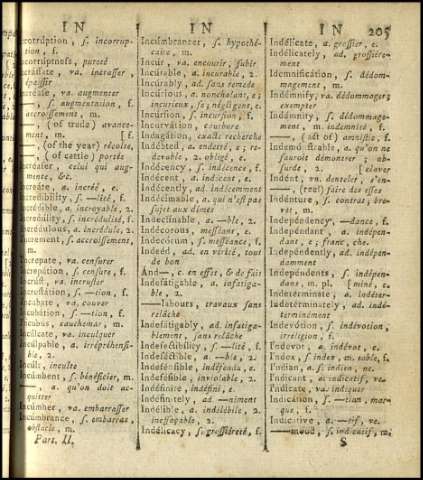 IN IN IN 205
corruption, s. incorrup-
tion, f.
incrassate, va. incrasser,
épaissir
, va. augmenter
—, s. augmentation, f.
accroissement, m.
—, (of trade) avance-
ment, m. [f.
—, (of the year) récolte,
—, (of cattle) portée
, celui qui aug-
mente, &c.
créate, a. incréé, e.
crédibility, s. —lité, f.
crédible, a. incroyable, 2.
crédulity, s. incrédulité, f.
crédulous, a. incrédule, 2.
crement, s. accroissement,
m.
crepate, va. censurer
crepátion, s. censure, f.
crust, va. incruster
crustátion, s. —tion, f.
cubate, va. couver
cubátion, s. —tion, f.
cubus, cauchemar, m.
culcate, va. inculquer
culpable, a. irrépréhensi-
ble, 2.
cult, a. inculte
cumbent, s. bénéficier, m.
—, a. qu'on doit ac-
quitter
cúmber, va. embarrasser
cumbrance, s. embarras,
obstacle, m.
Part. II.
Incúmbrancer, s. hypothé-
caire, m.
Incúr, va. encourir, subir
Incúrable, a. incurable, 2.
Incúrably, ad. sans remede
Incúrious, a. nonchalant, e;
incurieux, se; négligent, e.
Incúrsion, s. incursion, f.
Incurvátion, courbure
Indagátion, exacte recherche
Indébted, a. endetté, e; re-
devable, 2. obligé, e.
Indécency, s. indécence, f.
Indécent, a. indécent, e.
Indécently, ad. indécemment
Indécimable, a. qui n'est pas
sujet aux dîmes
Indeclínable, a. —ble, 2.
Indécorous, messéant, e.
Indecórum, s. messéance, f.
Indéed, ad. en vérité, tout
de bon
And—, c. en effet, & de fait
Indefátigable, a. infatiga-
ble, 2.
—labours, travaux sans
relâche
Indefátigably, ad. infatiga-
blement, sans relâche
Indefectibílity, s. —lité, f.
Indeféctible, a. —ble, 2.
Indefénsible, indéfendu, e.
Indeféisible, inviolable, 2.
Indéfinite, indéfini, e.
Indéfinitely, ad. —niment
Indélible, a. indélébile, 2.
ineffaçable, 2.
Indélicacy, s. grossiéreté, f.
Indélicate, a. grossier, e.
Indélicately, ad. grossiére-
ment
Idemnificátion, s. dédom-
magement, m.
Indémnify, va. dédommager;
exempter
Indémnity, s. dédommage-
ment, m. indemnité, f.
—, (act of) amnistie, f.
Indemónstrable, a. qu'on ne
sauroit démontrer; ab-
surde, 2. [claver
Indént, va. denteler, s'en-
—, (real) faire des esses
Indénture, s. contrat; bre-
vet, m.
Indepéndency, —dance, f.
Indepéndant, a. indépend-
ant, e; franc, che.
Indepéndently, ad. indépen-
damment
Indepéndents, s. indépen-
dans, m. pl. [miné, e.
Indetérminate, a. indéter-
Indetérminately, ad. indé-
terminément
Indevótion, s. indévotion,
irreligion, f.
Indevót, a. indévot, e.
Index, s. index, m. table, f.
Indian, a. Indien, ne.
Indicant, a. indicatif, ve.
Indicate, va. indiquer
Indicátion, s. —tion, mar-
que, f.
Indicative, a. —tif, ve.
—mood, s. indicatif, m.
S